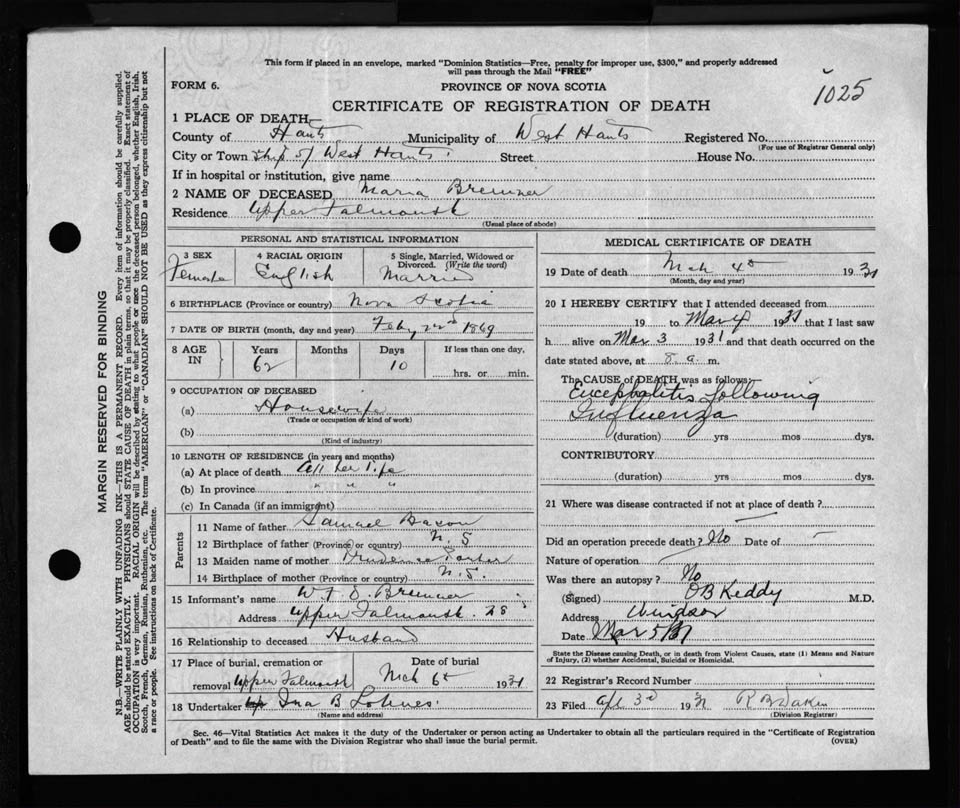 This form if placed in an envelope, marked "Dominion Statistics—Free, penalty for improper use, $300," and properly addressed
will pass through the Mail "FREE"
FORM 6.
PROVINCE OF NOVA SCOTIA
1025
CERTIFICATE OF REGISTRATION OF DEATH
1 PLACE OF DEATH—
County of Hants Municipality of West Hants Registered No.
(For use of Registrar General only)
City or Town Ship of West Hants Street House No.
If in hospital or institution, give name
2 NAME OF DECEASED Maria Bremner
Residence Upper Falmouth
(Usual place of abode)
PERSONAL AND STATISTICAL INFORMATION
3 SEX 4 RACIAL ORIGIN 5 Single, Married, Widowed or
Divorced. (Write the word)
Female English Married
6 BIRTHPLACE (Province or country) Nova Scotia
7 DATE OF BIRTH (month, day and year) Feby 22nd 1869
8 AGE IN Years Months Days If less than one day,
62 10 hrs. or min.
9 OCCUPATION OF DECEASED
(a) Housewife
(Trade or occupation or kind of work)
(b)
(Kind of industry)
10 LENGTH OF RESIDENCE (in years and months)
(a) At place of death All her life
(b) In province " " "
(c) In Canada (if an immigrant)
Parents
11 Name of father Samuel Bacon
12 Birthplace of father (Province or country) N. S
13 Maiden name of mother Prudence
14 Birthplace of mother (Province or country) N. S.
15 Informant's name Bremner
Address Upper Falmouth NS
16 Relationship to deceased Husband
17 Place of burial, cremation or Date of burial
removal Upper Falmouth Mch 6th 1931
18 Undertaker Ina B Lohnes
(Name and address)
MEDICAL CERTIFICATE OF DEATH
19 Date of death Mch 4th 1931
(Month, day and year)
20 I HEREBY CERTIFY that I attended deceased from
19 to Mar 4 1931 that I last saw
h alive on Mar 3 1931 and that death occurred on the
date stated above, at 8 a. m.
The CAUSE of DEATH was as follows:
Encephalitis following
Influenza
(duration) yrs mos dys.
CONTRIBUTORY
(duration) yrs mos dys.
21 Where was disease contracted if not at place of death?
Did an operation precede death? No Date of —
Nature of operation
Was there an autopsy? No
(Signed) O B Keddy M.D.
Address Windsor
Date Mar 5/31
State the Disease causing Death, or in death from Violent Causes, state (1) Means and Nature
of Injury, (2) whether Accidental, Suicidal or Homicidal.
22 Registrar's Record Number
23 Filed Apl 3rd 1931 R B Dakin
(Division Registrar)
Sec. 46—Vital Statistics Act makes it the duty of the Undertaker or person acting as Undertaker to obtain all the particulars required in the "Certificate of Registration
of Death" and to file the same with the Division Registrar who shall issue the burial permit. (OVER)
MARGIN RESERVED FOR BINDING
N.B.—WRITE PLAINLY WITH UNFADING INK—THIS IS A PERMANENT RECORD. Every item of information should be carefully supplied.
AGE should be stated EXACTLY. PHYSICIANS should STATE CAUSE OF DEATH in plain terms, so that it may be properly classified. Exact statement of
OCCUPATION is very important. RACIAL ORIGIN will be described by stating to what people or race the deceased person belonged, whether English, Irish,
Scotch, French, German, Russian, Ruthenian, etc. The terms "AMERICAN" or "CANADIAN" SHOULD NOT BE USED as they express citizenship but not
a race or people. See instructions on back of Certificate.